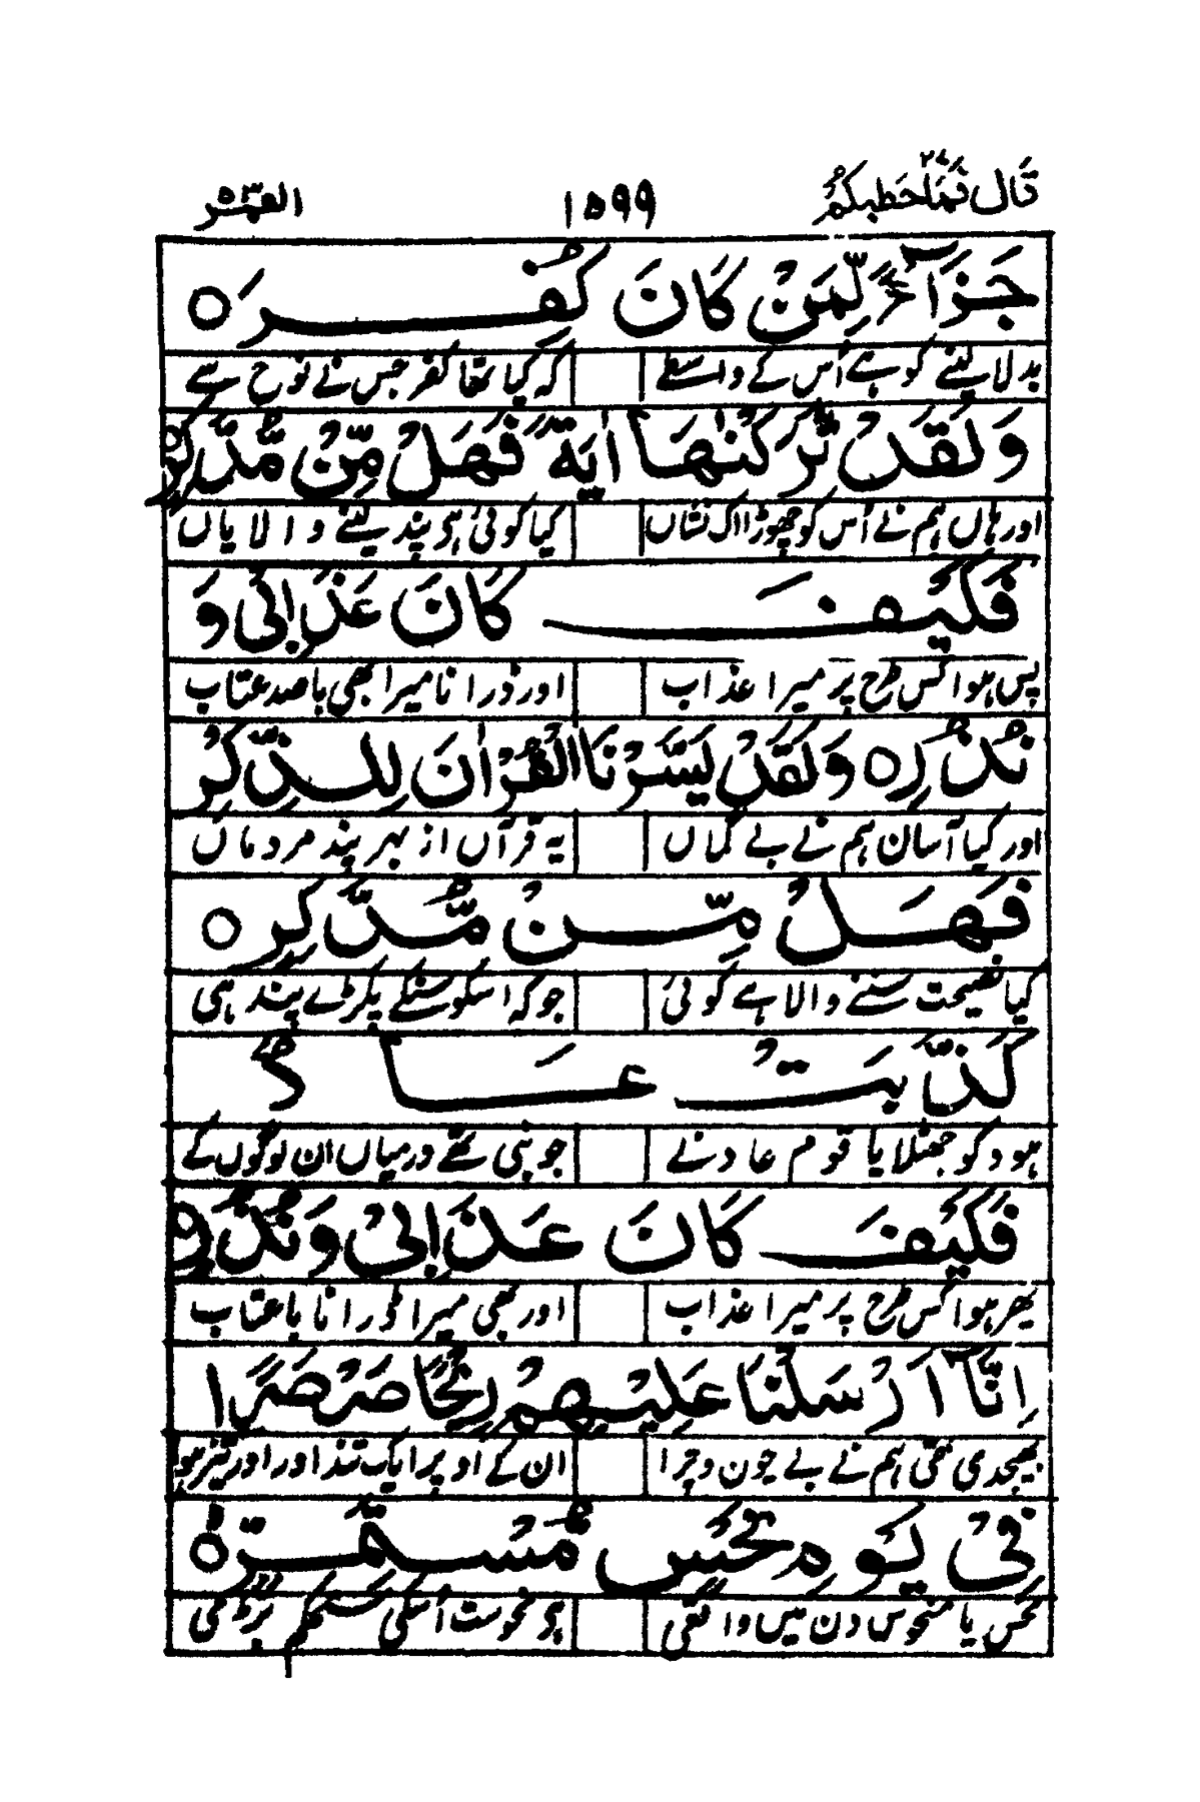 قال فما خطبكم ۲۷ ۱۵۹۹ القمر ۵۳
جَزَآءً لِّمَنْ كَانَ كُفِرَ ○
بدلا لینے کو ہے اُس کے واسطے کہ کیا تھا کفر جس نے نوح سے
وَلَقَدْ تَّرَكْنٰهَآ اٰيَةً فَهَلْ مِنْ مُّدَّكِرٍ
اور ہاں ہم نے اُس کو چھوڑا اک نشاں کیا کوئی ہی پند لینے والا یاں
فَكَيْفَ كَانَ عَذَابِيْ وَ
پس ہوا کس طرح پر میرا عذاب اور ڈرانا میرا بھی باصد عتاب
نُذُرِ ○ وَلَقَدْ يَسَّرْنَا الْقُرْاٰنَ لِلذِّكْرِ
اور کیا آسان ہم نے بے گماں یہ قرآں از بہر پند مردماں
فَهَلْ مِنْ مُّدَّكِرٍ ○
کیا نصیحت سننے والا ہے کوئی جو کہ اسکو سنکے پکڑے پند ہی
كَذَّبَتْ عَادٌ
ہود کو جھٹلایا قوم عاد نے جو نبی تھے درمیاں ان لوگوں کے
فَكَيْفَ كَانَ عَذَابِيْ وَنُذُرِ
پھر ہوا کس طرح پر میرا عذاب اور بھی میرا ڈرانا با عتاب
اِنَّآ اَرْسَلْنَا عَلَيْهِمْ رِيْحًا صَرْصَرًا
بھیجدی تھی ہم نے بے چون و چرا ان کے اوپر ایک تند اور اور تیز ہوا
فِيْ يَوْمِ نَحْسٍ مُّسْتَمِرٍّ ○
نحس یا منحوس دن میں واقعی جو نحوست اُسکی مستحکم بڑی